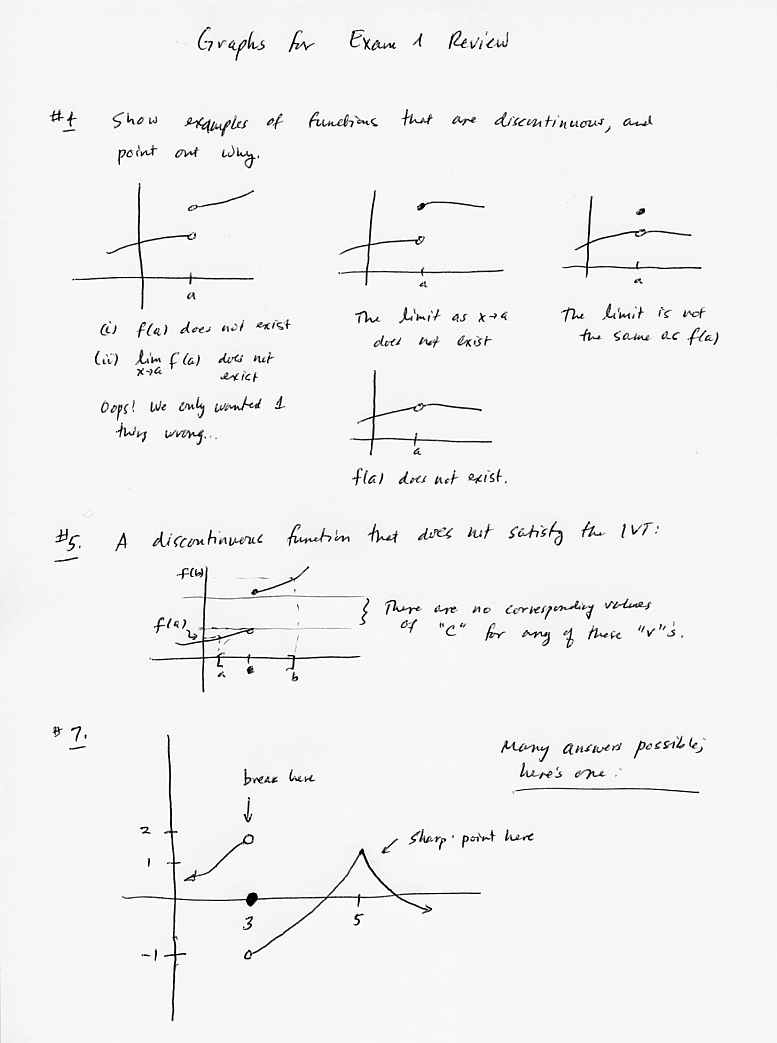 Graphs for Exam 1 Review
#4 Show examples of functions that are discontinuous, and
point out why.
a
a
a
(i) f(a) does not exist
(ii) lim f(a) does not
x→a exist
Oops! We only wanted 1
thing wrong...
The limit as x→a
does not exist
The limit is not
the same as f(a)
a
f(a) does not exist.
#5. A discontinuous function that does not satisfy the IVT:
f(b)
f(a)
a c b
There are no corresponding values
of "c" for any of these "v"'s.
#7.
Many answers possible;
here's one:
break here
sharp point here
2
1
3 5
-1